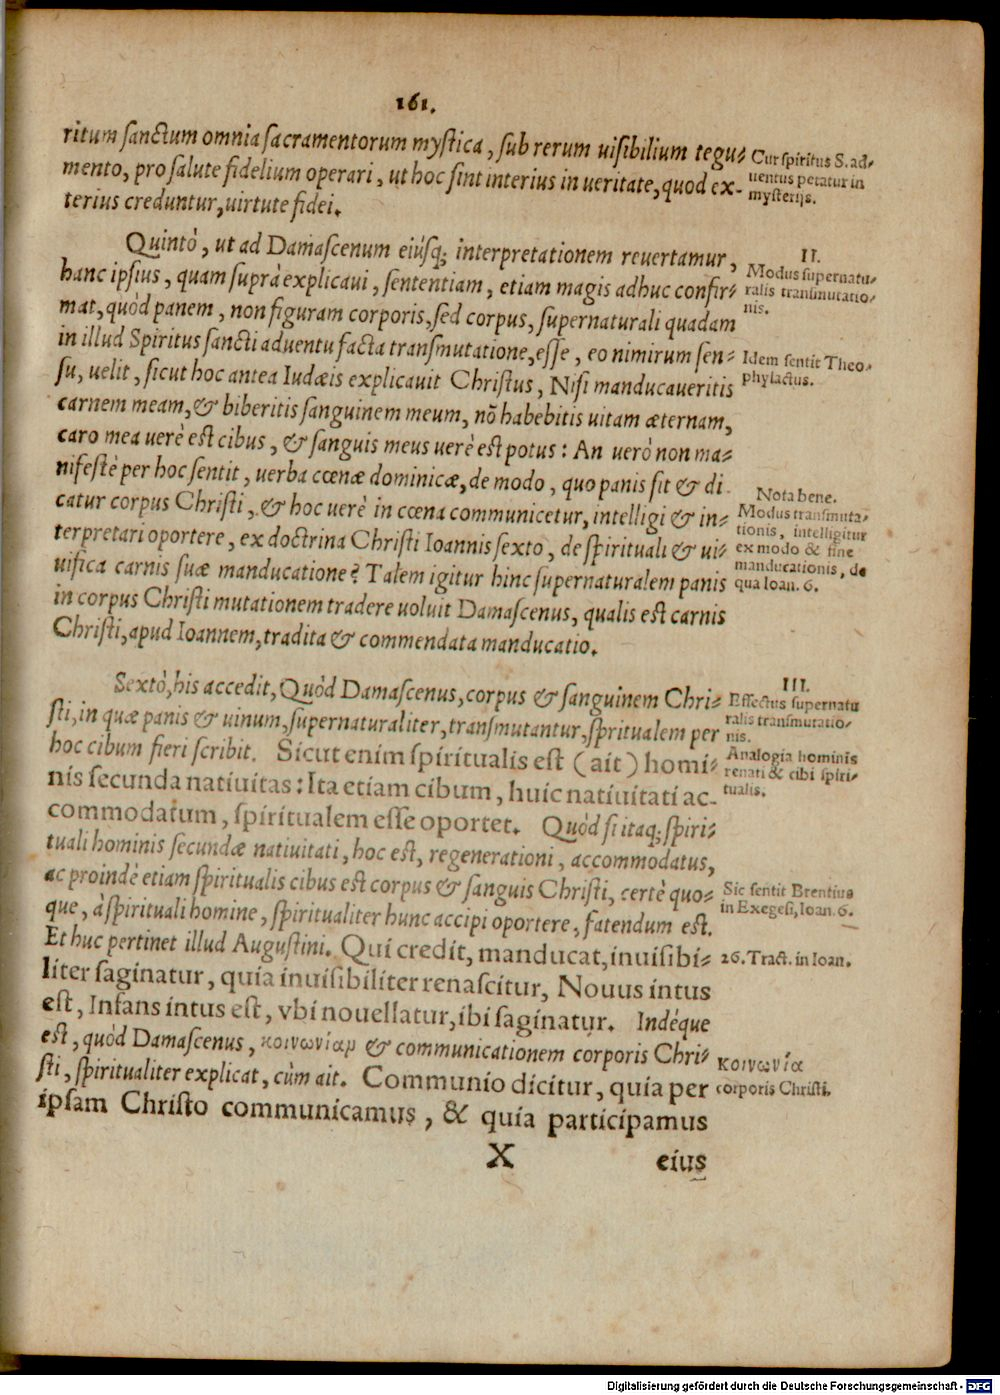 161.
ritum sanctum omnia sacramentorum mystica, sub rerum uisibilium tegu=
mento, pro salute fidelium operari, ut hoc sint interius in ueritate, quod ex-
terius creduntur, uirtute fidei.
Cur spiritus S. ad-
uentus petatur in
mysterijs.
Quintò, ut ad Damascenum eiúsq; interpretationem reuertamur,
hanc ipsius, quam suprà explicaui, sententiam, etiam magis adhuc confir=
mat, quòd panem, non figuram corporis, sed corpus, supernaturali quadam
in illud Spiritus sancti aduentu facta transmutatione, esse, eo nimirum sen=
su, uelit, sicut hoc antea Iudæis explicauit Christus, Nisi manducaueritis
carnem meam, & biberitis sanguinem meum, nõ habebitis uitam æternam,
caro mea uerè est cibus, & sanguis meus uerè est potus: An uerò non ma=
nifestè per hoc sentit, uerba cœnæ dominicæ, de modo, quo panis sit & di
catur corpus Christi, & hoc uerè in cœna communicetur, intelligi & in=
terpretari oportere, ex doctrina Christi Ioannis sexto, de spirituali & ui=
uifica carnis suæ manducatione? Talem igitur hinc supernaturalem panis
in corpus Christi mutationem tradere uoluit Damascenus, qualis est carnis
Christi, apud Ioannem, tradita & commendata manducatio.
II.
Modus supernatu-
ralis transmutatio-
nis.
Idem sentit Theo-
phylactus.
Nota bene.
Modus transmuta-
tionis, intelligitur
ex modo & fine
manducationis, de
qua Ioan. 6.
Sextò, his accedit, Quòd Damascenus, corpus & sanguinem Chri=
sti, in quæ panis & uinum, supernaturaliter, transmutantur, spritualem per
hoc cibum fieri scribit. Sicut enim spiritualis est (ait) homi=
nis secunda natiuitas: Ita etiam cibum, huic natiuitati ac-
commodatum, spiritualem esse oportet. Quòd si itaq; spiri=
tuali hominis secundæ natiuitati, hoc est, regenerationi, accommodatus,
ac proindè etiam spiritualis cibus est corpus & sanguis Christi, certè quo=
que, à spirituali homine, spiritualiter hunc accipi oportere, fatendum est.
Et huc pertinet illud Augustini. Qui credit, manducat, inuisibi=
liter saginatur, quia inuisibiliter renascitur, Nouus intus
est, Infans intus est, vbi nouellatur, ibi saginatur. Indéque
est, quòd Damascenus, κοινωνίαμ & communicationem corporis Chri=
sti, spiritualiter explicat, cùm ait. Communio dicitur, quia per
ipsam Christo communicamus, & quia participamus
III.
Effectus supernatu
ralis transmutatio-
nis.
Analogia hominis
renati & cibi spiri-
tualis.
Sic sentit Brentius
in Exegesi, Ioan. 6.
26. Tract. in Ioan.
κοινωνία
corporis Christi.
X
eius
Digitalisierung gefördert durch die Deutsche Forschungsgemeinschaft - DFG